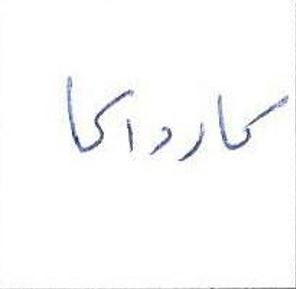 کارداکا